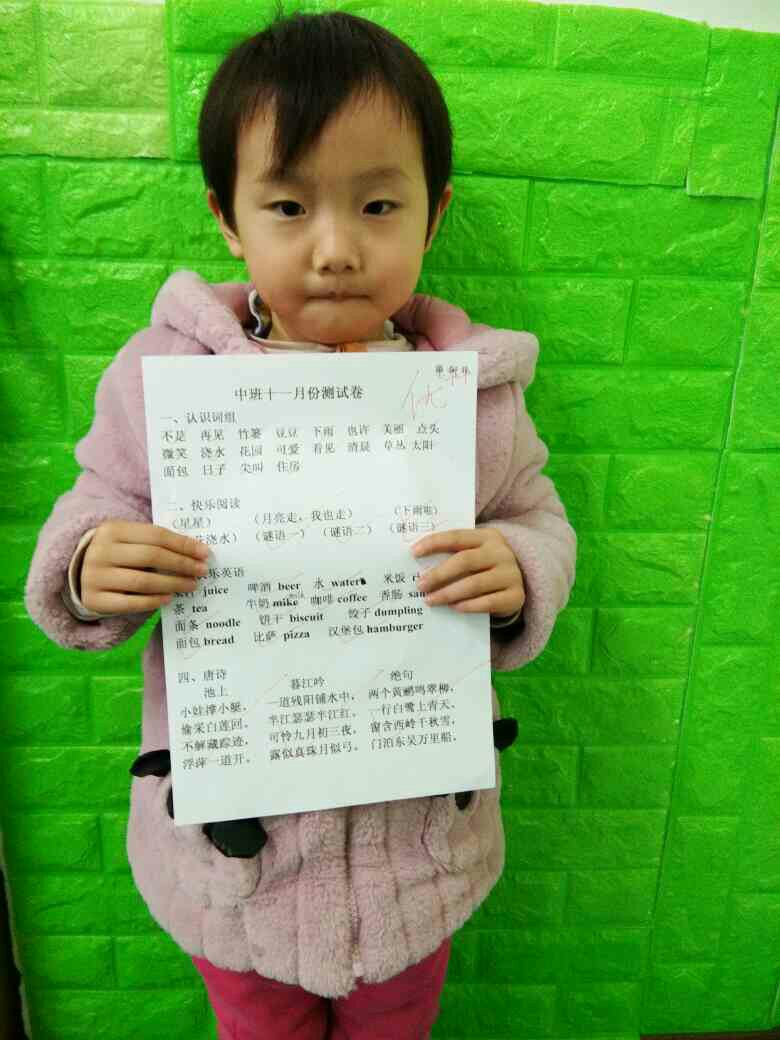 中班十一月份测试卷
优
一、认识词组
不是 再见 竹篓 豆豆 下雨 也许 美丽 点头
微笑 浇水 花园 可爱 看见 清晨 草丛 太阳
面包 日子 尖叫 住房
二、快乐阅读
（星星） （月亮走，我也走） （下雨啦）
浇水） （谜语一） （谜语二） （谜语三）
乐英语
juice 啤酒 beer 水 water 米饭
茶 tea 牛奶 mike milk 咖啡 coffee 香肠
面条 noodle 饼干 biscuit 饺子 dumpling
面包 bread 比萨 pizza 汉堡包 hamburger
四、唐诗
池上 暮江吟 绝句
小娃撑小艇， 一道残阳铺水中， 两个黄鹂鸣翠柳，
偷采白莲回。 半江瑟瑟半江红。 一行白鹭上青天。
不解藏踪迹， 可怜九月初三夜， 窗含西岭千秋雪，
浮萍一道开。 露似真珠月似弓。 门泊东吴万里船。